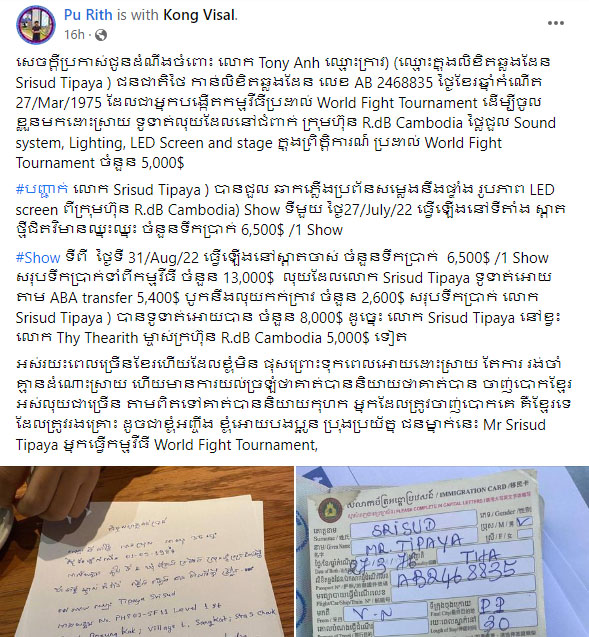 Pu Rith is with Kong Visal.
16h
សេចក្តីប្រកាស់ជូនដំណឹងចំពោះ លោក Tony Anh ឈ្មោះក្រៅ) (ឈ្មោះក្នុងលិខិតឆ្លងដែន
Srisud Tipaya ) ជនជាតិថៃ កាន់លិខិតឆ្លងដែន លេខ AB 2468835 ថ្ងៃខែរឆ្នាំកំណើត
27/Mar/1975 ដែលជាអ្នកបង្កើតកម្មវីធីប្រដាល់ World Fight Tournament ដើម្បីចូល
ខ្លួនមកដោះស្រាយ ទូទាត់លុយដែលនៅជំពាក់ ក្រុមហ៊ុន R.dB Cambodia ថ្លៃជួល Sound
system, Lighting, LED Screen and stage ក្នុងព្រិត្តិការណ៍ ប្រដាល់ World Fight
Tournament ចំនួន 5,000$
#បញ្ជាក់ លោក Srisud Tipaya ) បានជួល ឆាកភ្លើងប្រព័នសម្លេងនឹងផ្ទាំង រូបភាព LED
screen ពីក្រុមហ៊ុន R.dB Cambodia) Show ទីមួយ ថ្ងៃ27/July/22 ធ្វើឡើងនៅទីតាំង ស្តាត
ថ្មីជិតវិមានឈ្នះឈ្នះ ចំនួនទឹកប្រាក់ 6,500$ /1 Show
#Show ទីពី ថ្ងៃទី 31/Aug/22 ធ្វើឡើងនៅស្តាតចាស់ ចំនួនទឹកប្រាក់ 6,500$ /1 Show
សរុបទឹកប្រាក់ទាំពីកម្មវីធី ចំនួន 13,000$ លុយដែលលោក Srisud Tipaya ទូទាត់អោយ
តាម ABA transfer 5,400$ បូកនឹងលុយកក់ក្រៅ ចំនួន 2,600$ សរុបទឹកប្រាក់ លោក
Srisud Tipaya ) បានទូទាត់អោយបាន ចំនួន 8,000$ ដូច្នេះ លោក Srisud Tipaya នៅខ្វះ
លោក Thy Thearith ម្ចាស់ក្រហ៊ុន R.dB Cambodia 5,000$ ទៀត
អស់រយះពេលច្រើនខែរហើយដែលខ្ញុំមិន ផុសព្រោះទុកពេលអោយដោះស្រាយ តែការ រង់ចាំ
គ្មានដំណោះស្រាយ ហើយមានការយល់ច្រឡំថាគាត់បាននិយាយថាគាត់បាន ចាញ់បោកខ្មែរ
អស់លុយជាច្រើន តាមពិតទៅគាត់បាននិយាយកុហក អ្នកដែលត្រូវចាញ់បោកគេ គឺខ្មែរទេ
ដែលត្រូវរងគ្រោះ ដូចជាខ្ញុំអញ្ចឹង ខ្ញុំអោយបងប្អូន ប្រុងប្រយ័ត្ន ជនម្នាក់នេះ Mr Srisud
Tipaya អ្នកធ្វើកម្មវីធី World Fight Tournament,
Tipaya Srisud
IMMIGRATION CARD
PLEASE COMPLETE IN CAPITAL LETTERS
SRISUD
MR. TIPAYA
THA
AB2468835
30